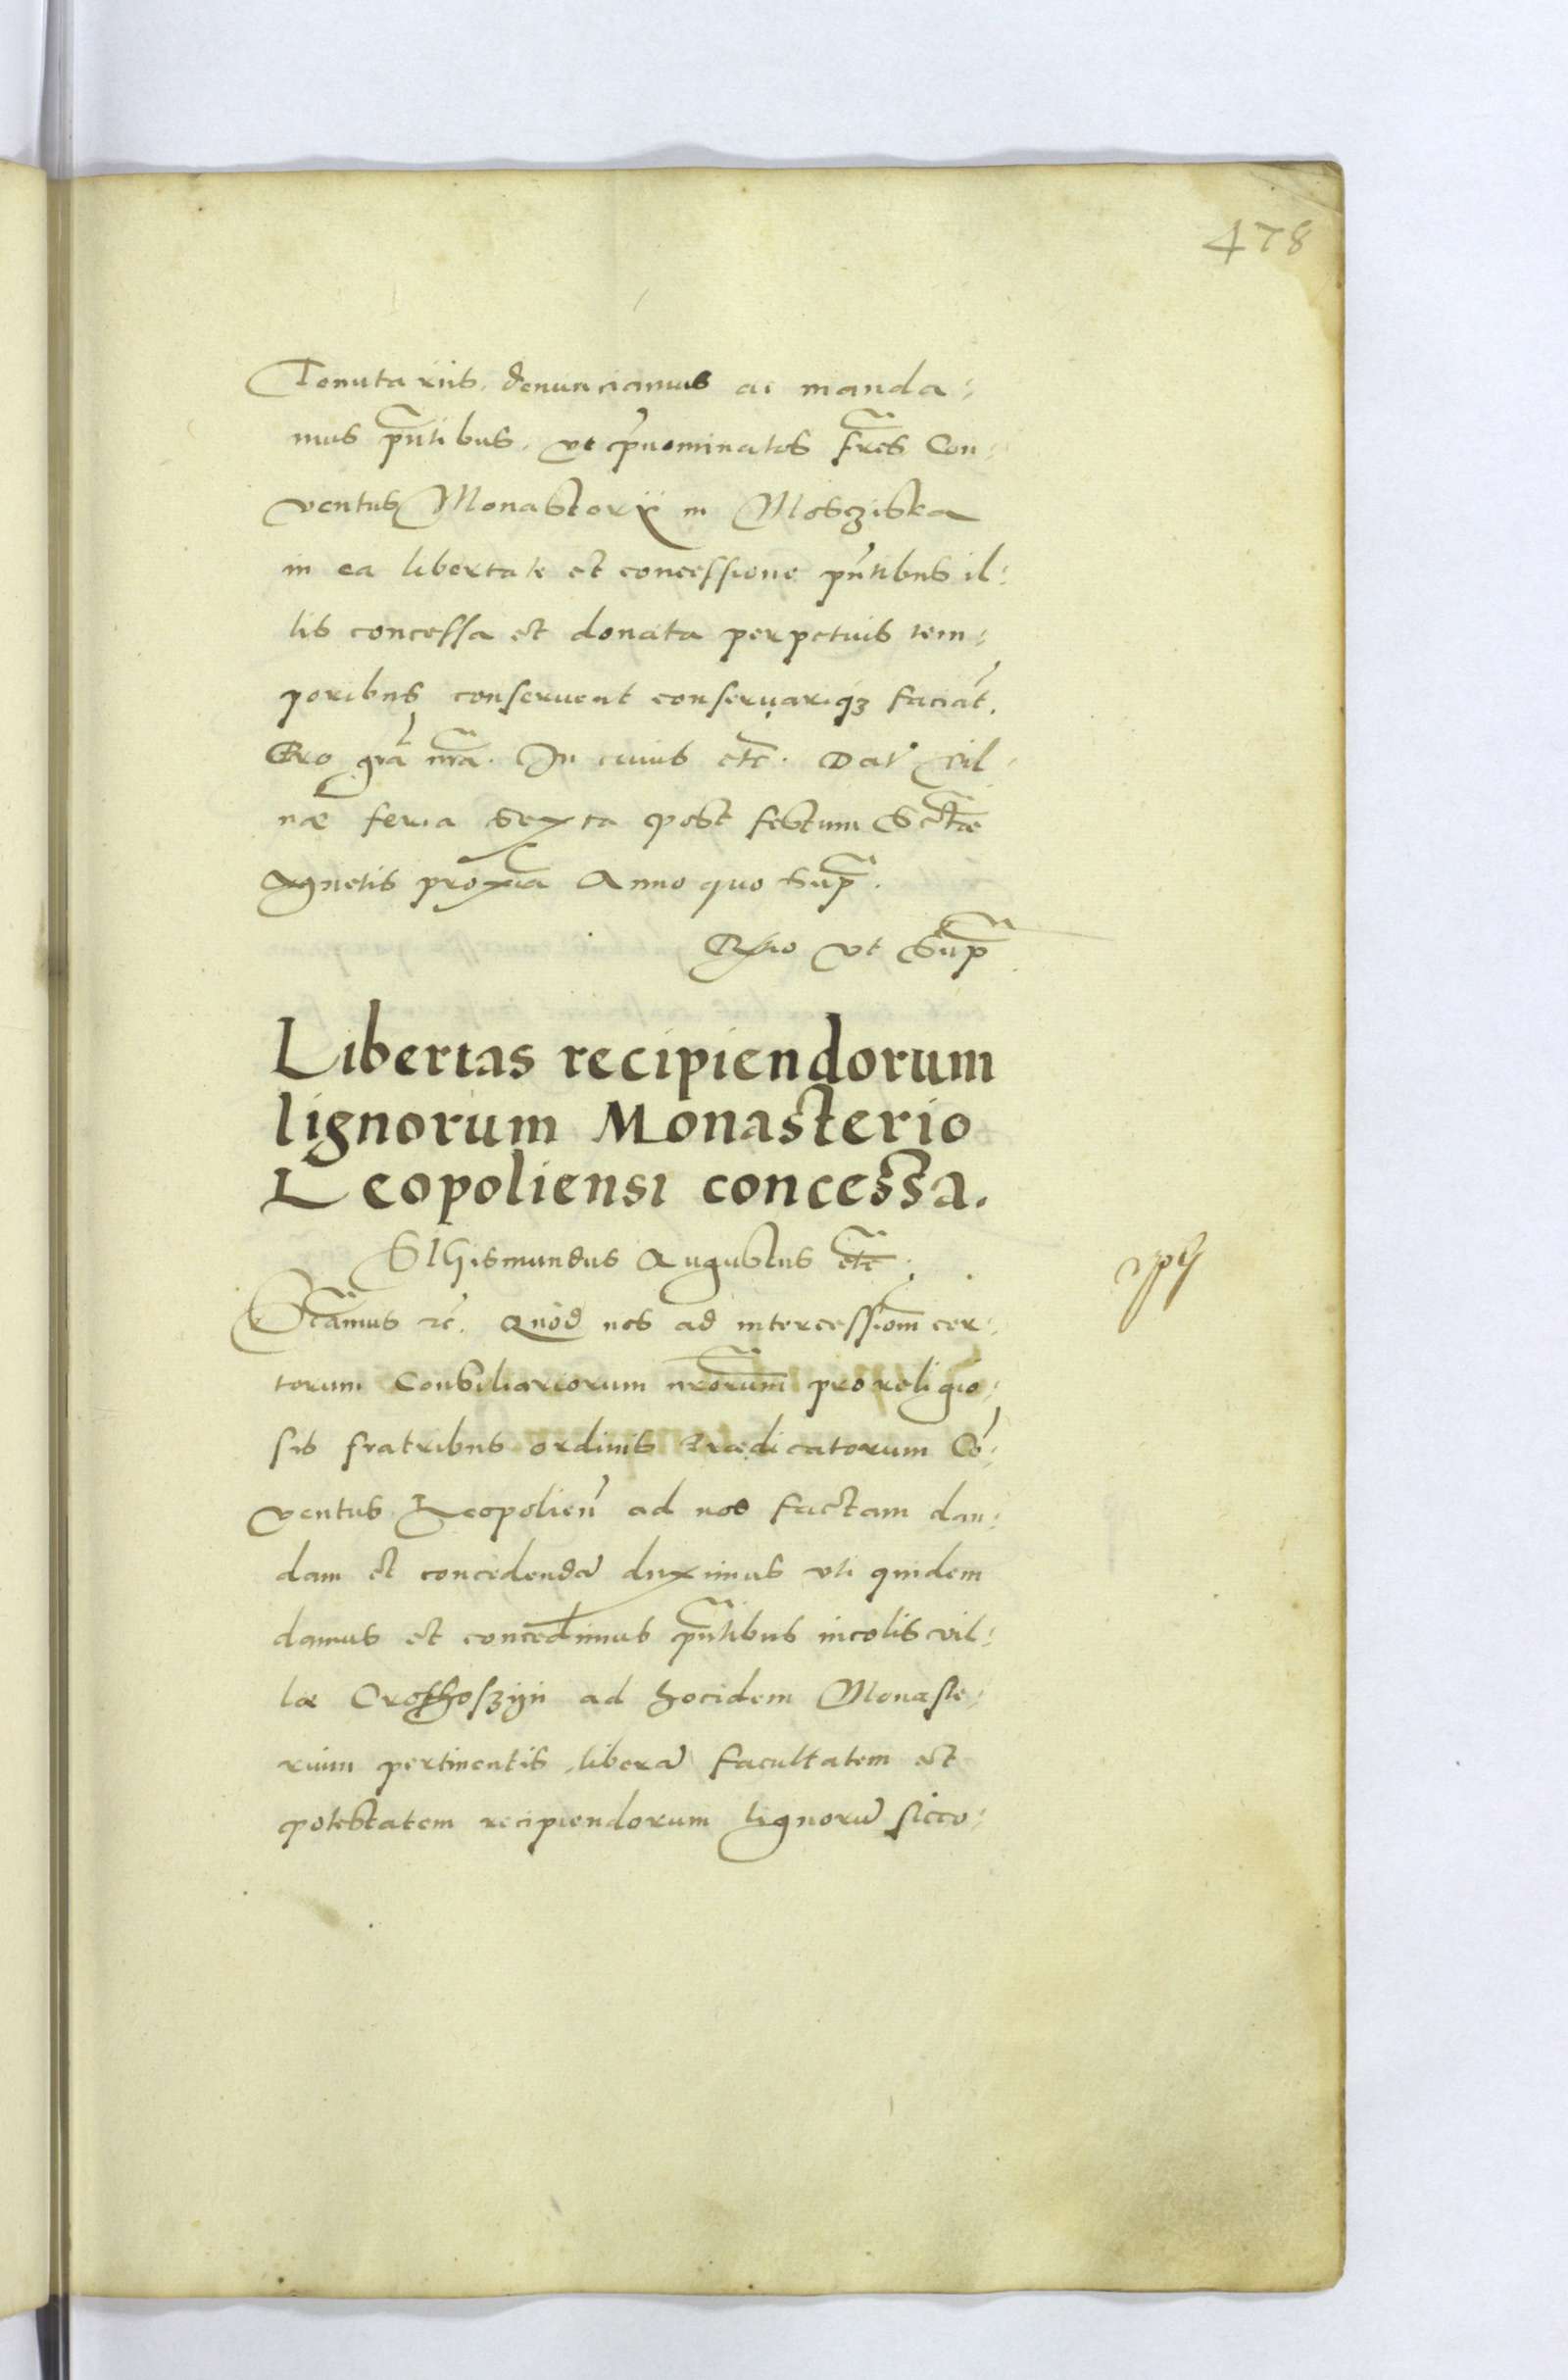 478
Tenutariis, denunciamus ac manda:
mus pn̄tibus, vt p̄nominatos fr̄es Con:
ventus Monasterii in Mosziska
in ea libertate et concessione pn̄tibus il:
lis concessa et donata perpetuis tem:
poribus conseruent conseruariq̃ faciāt.
Pro grā nr̄a. In cuius etc̄. Dat' Vil:
næ feria sexta post festum Sctæ
Agnetis proxīa Anno quo supr̄.
Rlō vt Supr̄
Libertas recipiendorum
lignorum Monasterio
Leopoliensi concessa.
SIGismundus Augustus etc̄.
Scāmus etc. Quod nos ad intercessiōm cer:
torum Consiliariorum nrōrum pro religio:
sis fratribus ordinis Prædicatorum Cō:
ventus Leopolien̄ ad nos factam dan:
dam et concedendā duximus uti quidem
damus et concedimus pn̄tibus incolis vil:
læ ad hocidem Monaste:
rium pertinentis, liberā facultatem et
potestatem recipiendorum lignorū sicco: